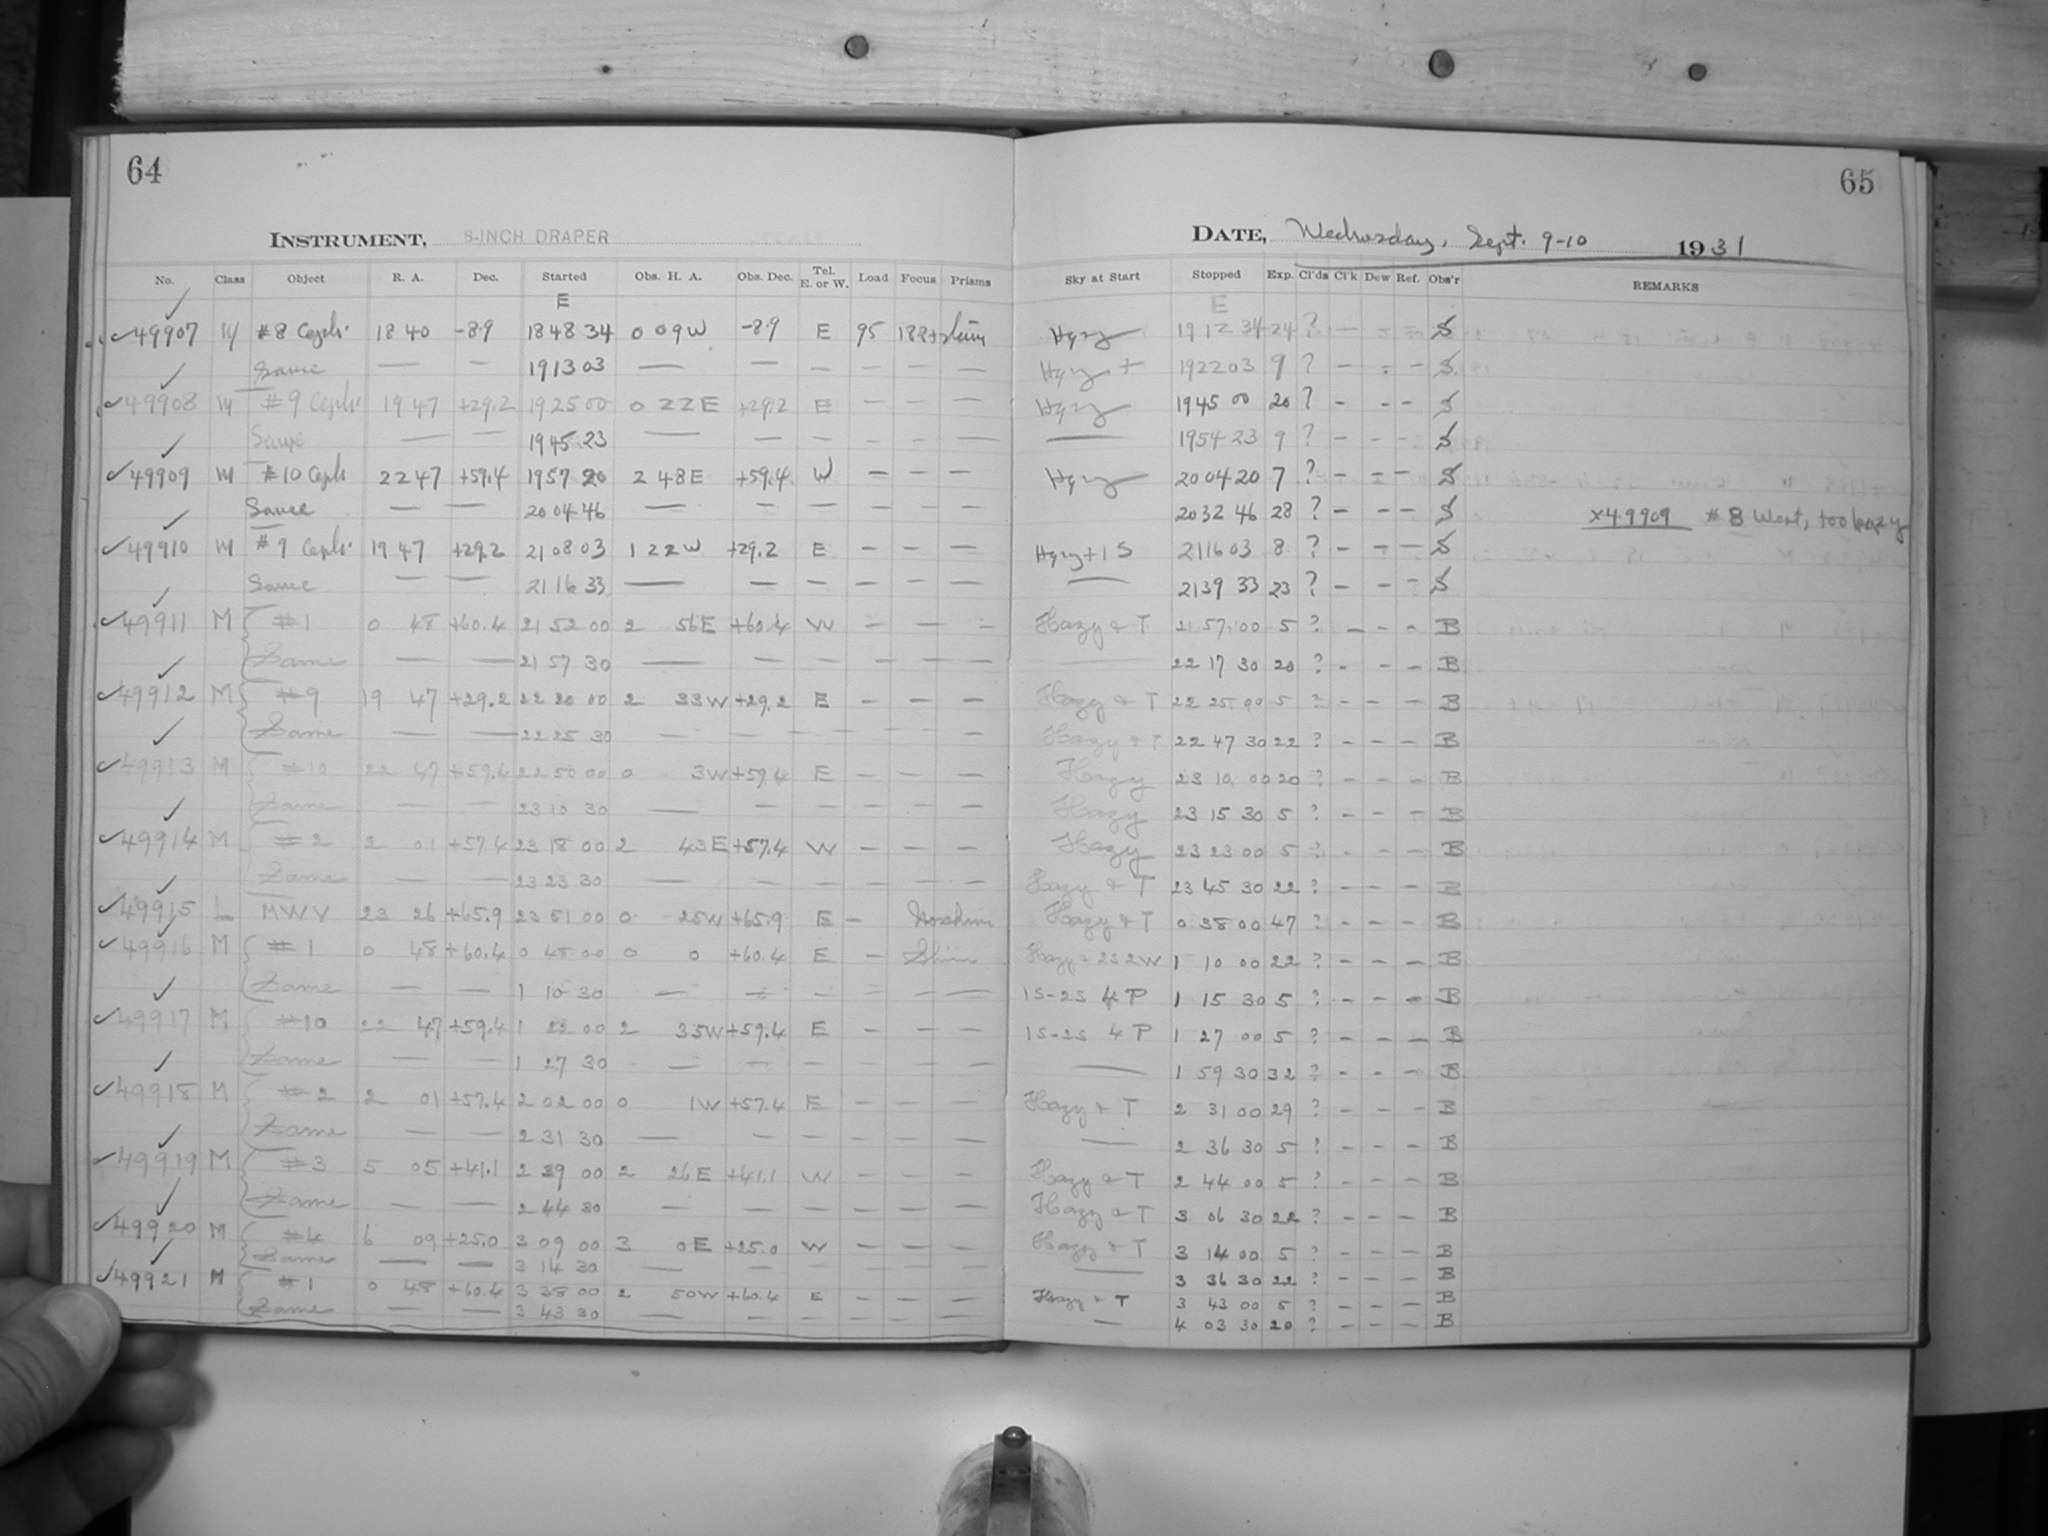 64
INSTRUMENT, 8-INCH DRAPER
No. Class Object R. A. Dec. Started Obs. H. A. Obs. Dec. Tel. E. or W. Load Focus Prisms
E
49907 #8 Ceph. 18 40 -8.9 18 48 34 0 09W -8.9 E 95
Same — — 19 13 03 — — — — — —
49908 #9 Ceph. 19 47 +29.2 19 25 00 0 22E +29.2 E — — —
Same — — 19 45 23 — — — — — —
49909 #10 Ceph 22 47 +59.4 19 57 20 2 48E +59.4 W — — —
Same — — 20 04 46 — — — — — —
49910 #9 Ceph. 19 47 +29.2 21 08 03 1 22W +29.2 E — — —
Same — — 21 16 33 — — — — — —
49911 M #1 0 48 +60.4 21 52 00 2 56E +60.4 W — — —
Same — — 21 57 30 — — — — — —
49912 M #9 19 47 +29.2 22 20 00 2 33W +29.2 E — — —
Same — — 22 25 30 — — — — — —
49913 M #10 22 47 +59.4 22 50 00 0 3W +59.4 E — — —
Same — — 23 10 30 — — — — — —
49914 M #2 2 01 +57.4 23 18 00 2 43E +57.4 W — — —
Same — — 23 23 30 — — — — — —
49915 L MWV 23 26 +65.9 23 51 00 0 25W +65.9 E — No shim
49916 M #1 0 48 +60.4 0 48 00 0 0 +60.4 E — Shim
Same — — 1 10 30 — — — — — —
49917 M #10 22 47 +59.4 1 22 00 2 35W +59.4 E — — —
Same — — 1 27 30 — — — — — —
49918 M #2 2 01 +57.4 2 02 00 0 1W +57.4 E — — —
Same — — 2 31 30 — — — — — —
49919 M #3 5 05 +41.1 2 39 00 2 26E +41.1 W — — —
Same — — 2 44 30 — — — — — —
49920 M #4 6 09 +25.0 3 09 00 3 0E +25.0 W — — —
Same — — 3 14 30 — — — — — —
49921 M #1 0 48 +60.4 3 38 00 2 50W +60.4 E — — —
Same — — 3 43 30 — — — — — —
65
DATE, Wednesday, Sept. 9-10 1931
Sky at Start Stopped Exp. Cl'ds Cl'k Dew Ref. Obs'r REMARKS
E
Hazy 19 12 34 24 ? — S
Hazy + 19 22 03 9 ? — - — S
Hazy 19 45 00 20 ? — - — S
— 19 54 23 9 ? — - — S
Hazy 20 04 20 7 ? — - — S
20 32 46 28 ? — - — S x49909 #8 West, too hazy
Hazy + 1 S 21 16 03 8 ? — — — S
— 21 39 33 23 ? — - — S
Hazy & T 21 57 00 5 ? — - — B
— 22 17 30 20 ? — - — B
Hazy & T 22 25 00 5 ? — - — B
Hazy & T 22 47 30 22 ? — - — B
Hazy 23 10 00 20 ? — - — B
Hazy 23 15 30 5 ? — - — B
Hazy 23 23 00 5 ? — - — B
Hazy & T 23 45 30 22 ? — - — B
Hazy & T 0 38 00 47 ? — - — B
Hazy & 2S 2W 1 10 00 22 ? — - — B
1S-2S 4 P 1 15 30 5 ? — - — B
1S-2S 4 P 1 27 00 5 ? — - — B
— 1 59 30 32 ? — - — B
Hazy & T 2 31 00 29 ? — - — B
— 2 36 30 5 ? — - — B
Hazy & T 2 44 00 5 ? — - — B
Hazy & T 3 06 30 22 ? — - — B
Hazy & T 3 14 00 5 ? — - — B
— 3 36 30 22 ? — - — B
Hazy & T 3 43 00 5 ? — - — B
— 4 03 30 20 ? — - — B